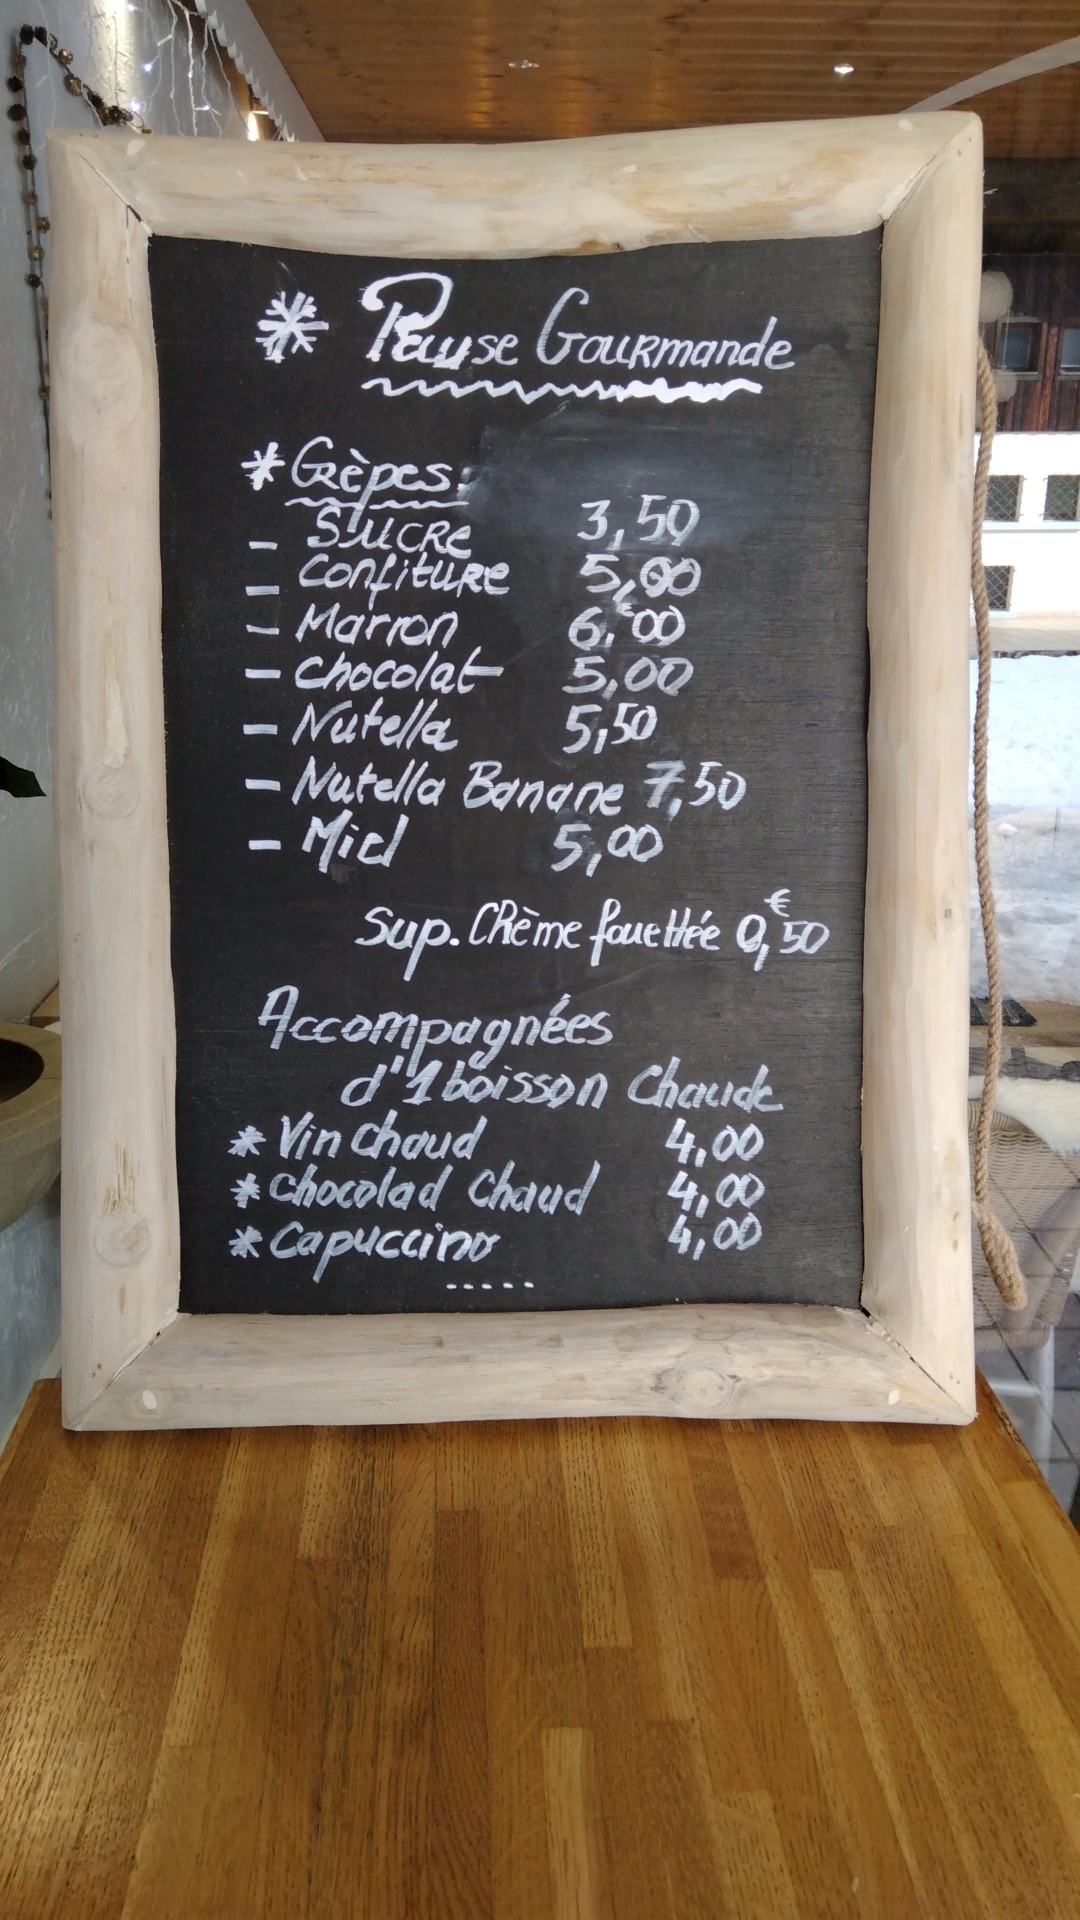 * Pause Gourmande
* Crèpes:
- Sucre 3,50
- Confiture 5,00
- Marron 6,€00
- Chocolat 5,00
- Nutella 5,50
- Nutella Banane 7,50
- Miel 5,00
Sup. Chème fouettée 0,€50
Accompagnées
d'1 boisson Chaude
* Vin Chaud 4,00
* Chocolad Chaud 4,00
* Capuccino 4,00
.....